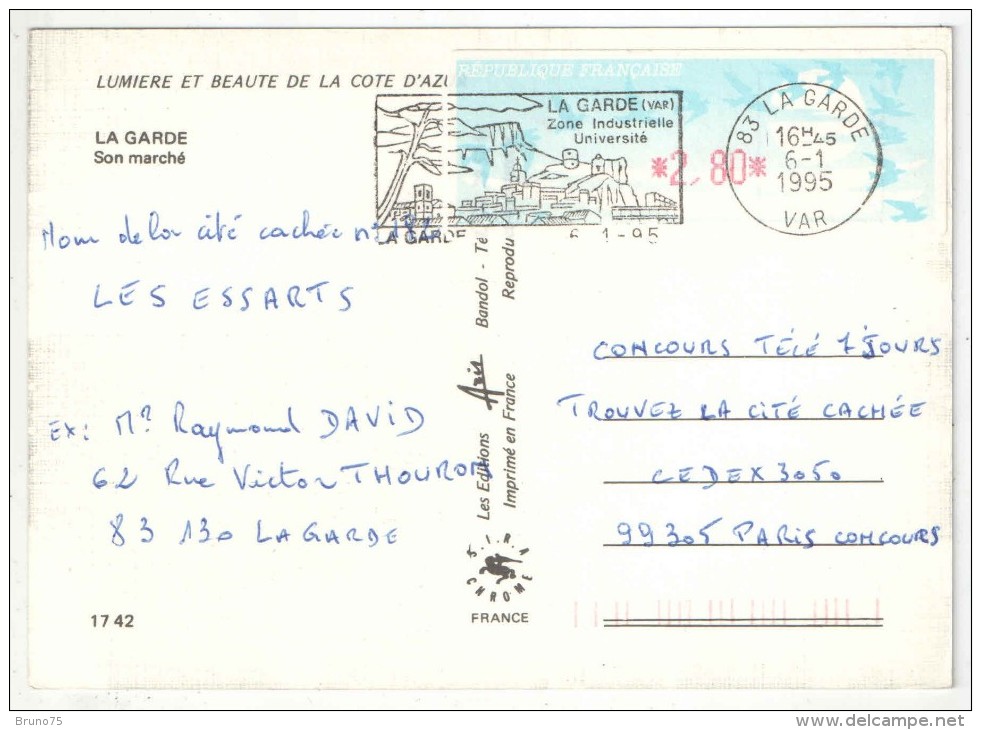 LUMIERE ET BEAUTE DE LA COTE D'AZU
RÉPUBLIQUE FRANÇAISE
LA GARDE
Son marché
LA GARDE (VAR)
Zone Industrielle
Université
*2,80*
83 LA GARDE
16H45
6-1
1995
VAR
LA GARDE
6 1-95
Nom de la cité cachée n°
LES ESSARTS
EX: Mr Raymond DAVID
62 Rue Victor THOURON
83 130 LA GARDE
Les Editions Aris Bandol - Té
Imprimé en France Reprodu
CONCOURS TÉLÉ 7 JOURS
TROUVEZ LA CITÉ CACHÉE
CEDEX 3050
99305 PARIS CONCOURS
S.I.R.A
CHROME
FRANCE
17 42
Bruno75
http://www.delcampe.net